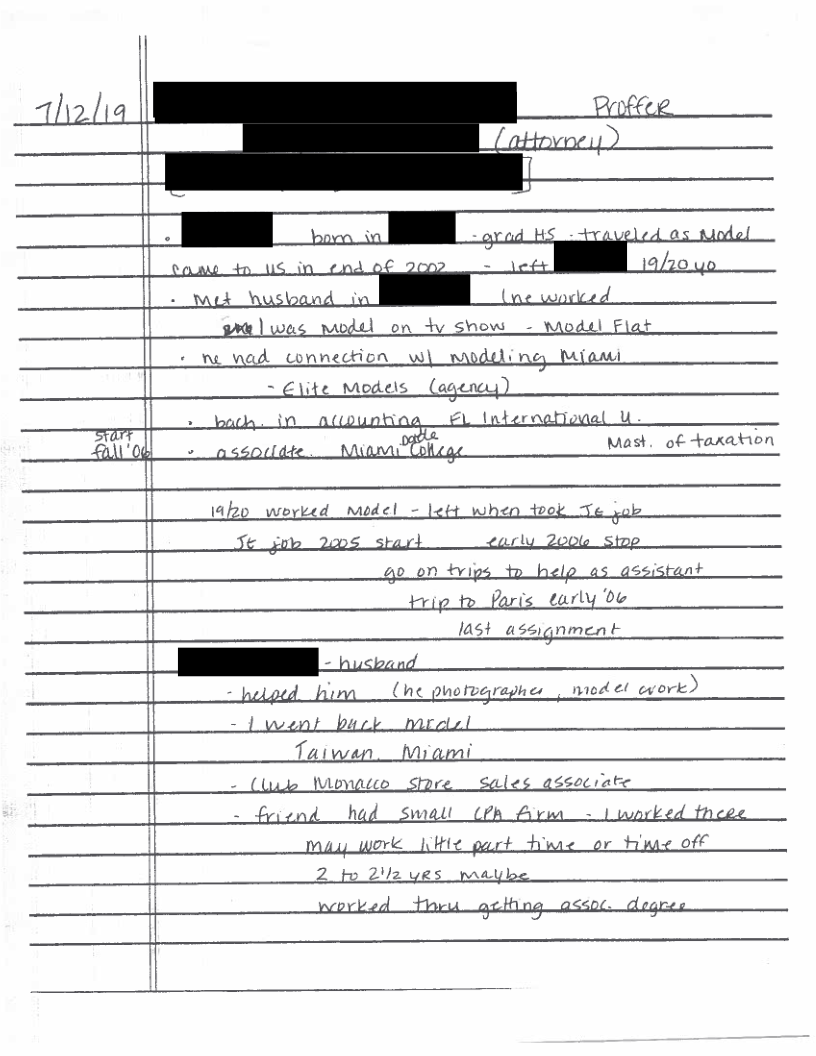 7/12/19 Proffer
(attorney)
]
· born in - grad HS - traveled as model
came to US in end of 2002 - left 19/20 yo
· Met husband in (he worked
I was model on tv show - Model Flat
· he had connection w/ modeling Miami
- Elite Models (agency)
· bach. in accounting FL International U.
start fall '06 · associate. Miami Dade College Mast. of taxation
19/20 worked model - left when took JE job
JE job 2005 start early 2006 stop
go on trips to help as assistant
trip to Paris early '06
last assignment
- husband
- helped him (he photographer, model work)
- I went back model
Taiwan, Miami
- Club Monacco store sales associate
- friend had small CPA firm - I worked there
may work little part time or time off
2 to 2 1/2 yrs maybe
worked thru getting assoc. degree